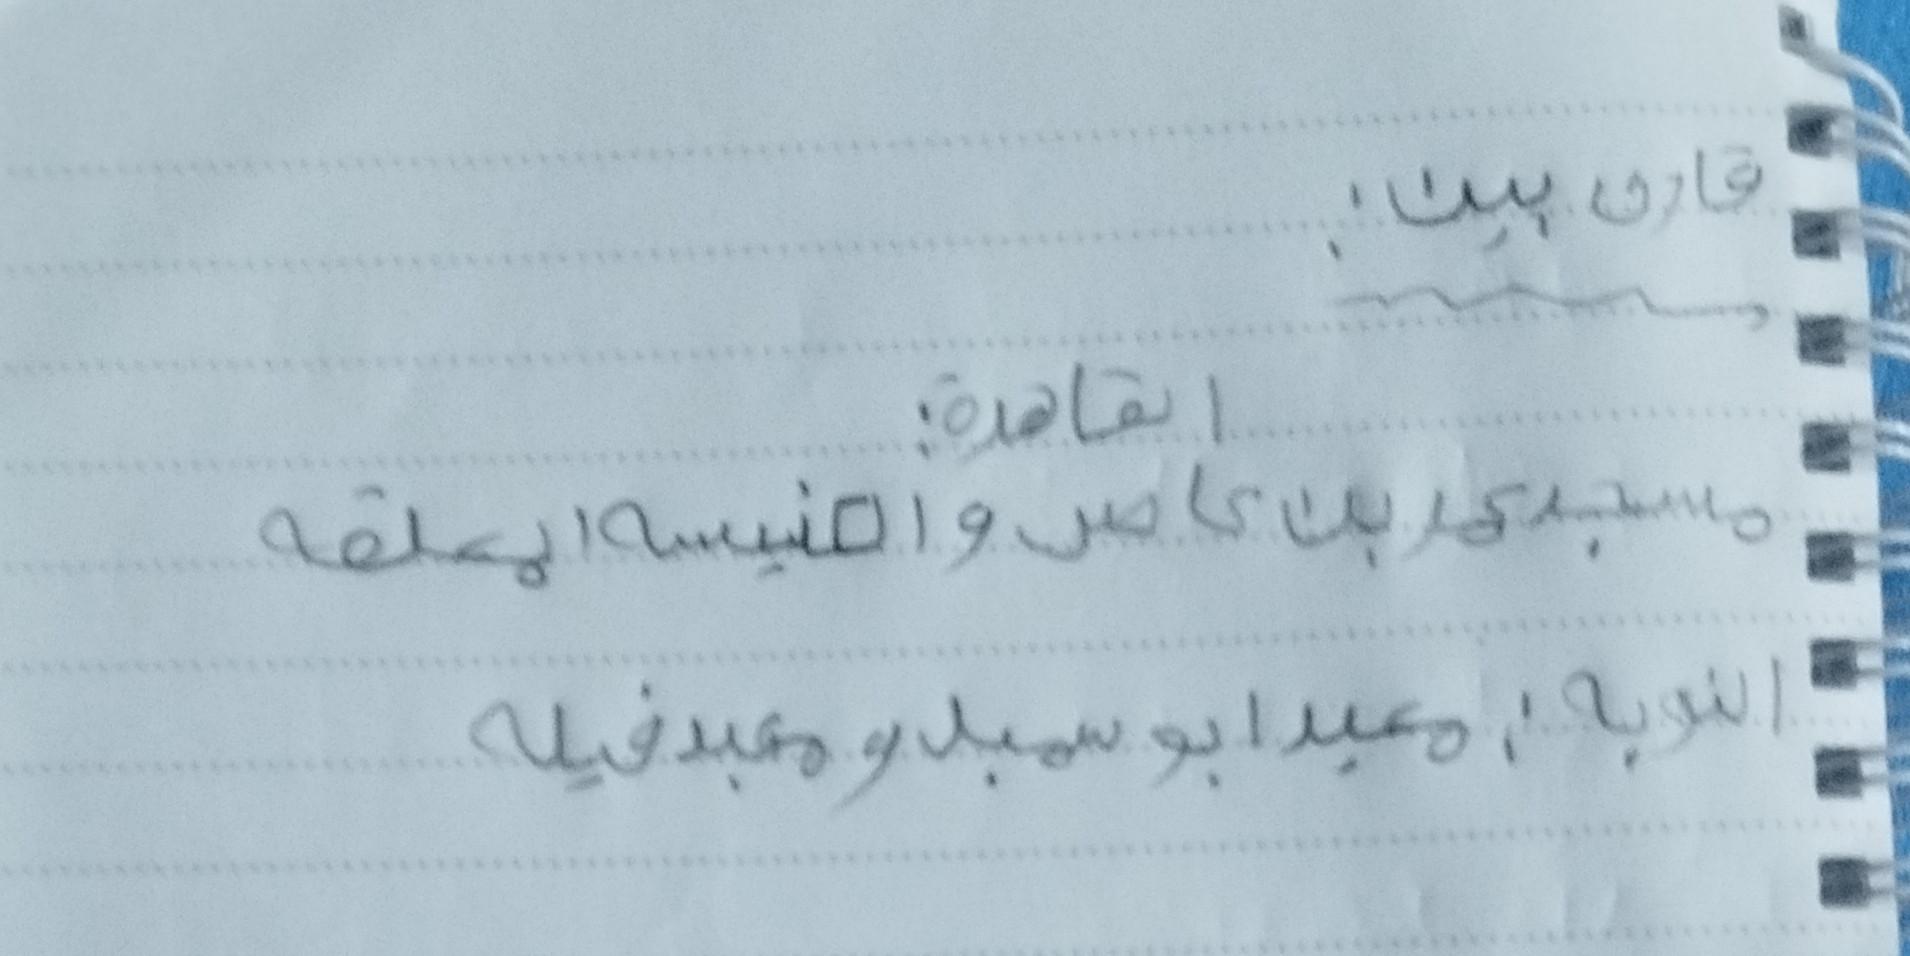 قارن بين:
القاهرة:
مسجد عمر بن عاص والكنيسه المعلقه
النوبه: معبد ابو سمبل و معبد فيله